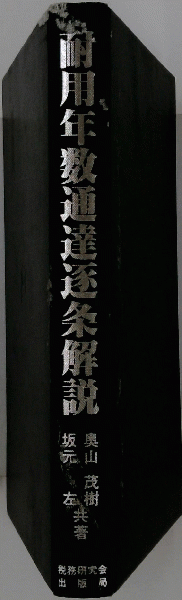 耐用年数通達逐条解説
奥山茂樹
坂元左
共著
税務研究会
出版局